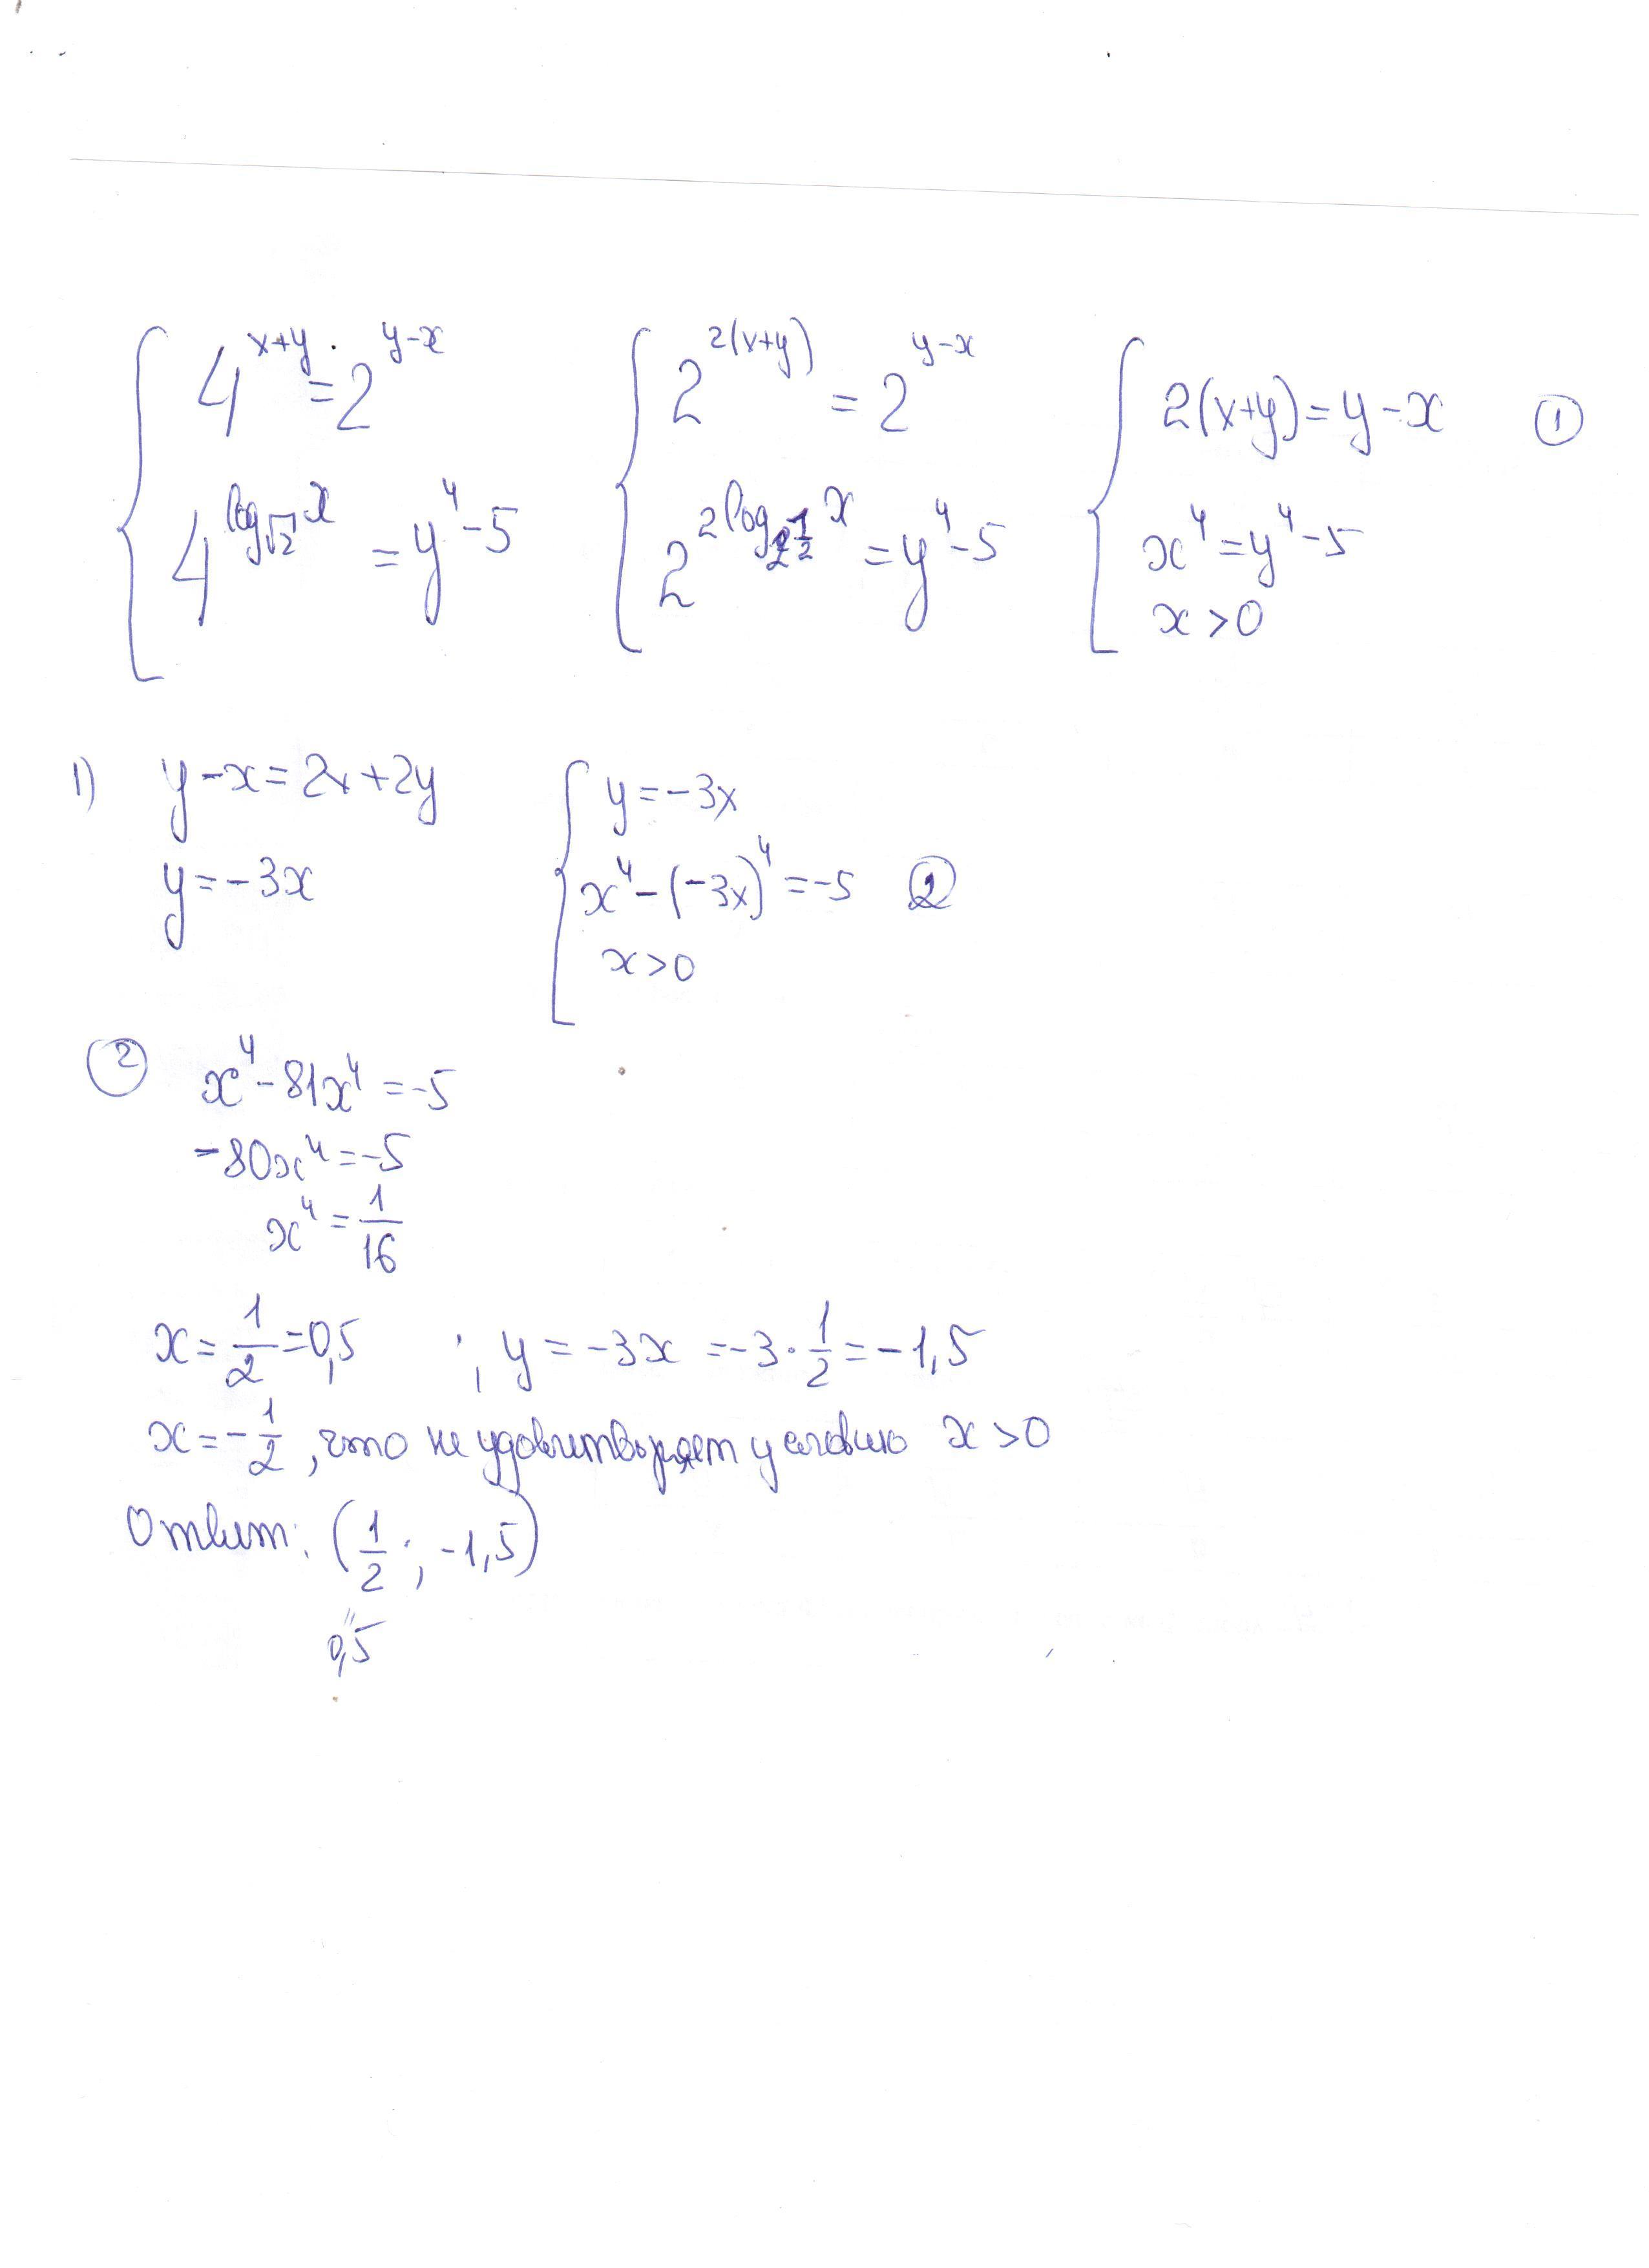 { 4^(x+y) = 2^(y-x) { 2^(2(x+y)) = 2^(y-x) { 2(x+y) = y-x ①
4^(log_√2 x) = y⁴-5 2^(2log_(2^(1/2)) x) = y⁴-5 x⁴ = y⁴-5
x > 0
1) y-x = 2x+2y { y = -3x
y = -3x x⁴-(-3x)⁴ = -5 ②
x > 0
② x⁴-81x⁴ = -5
-80x⁴ = -5
x⁴ = 1/16
x = 1/2 = 0,5 ; y = -3x = -3·1/2 = -1,5
x = -1/2, что не удовлетворяет условию x > 0
Ответ: (1/2; -1,5)
"
0,5